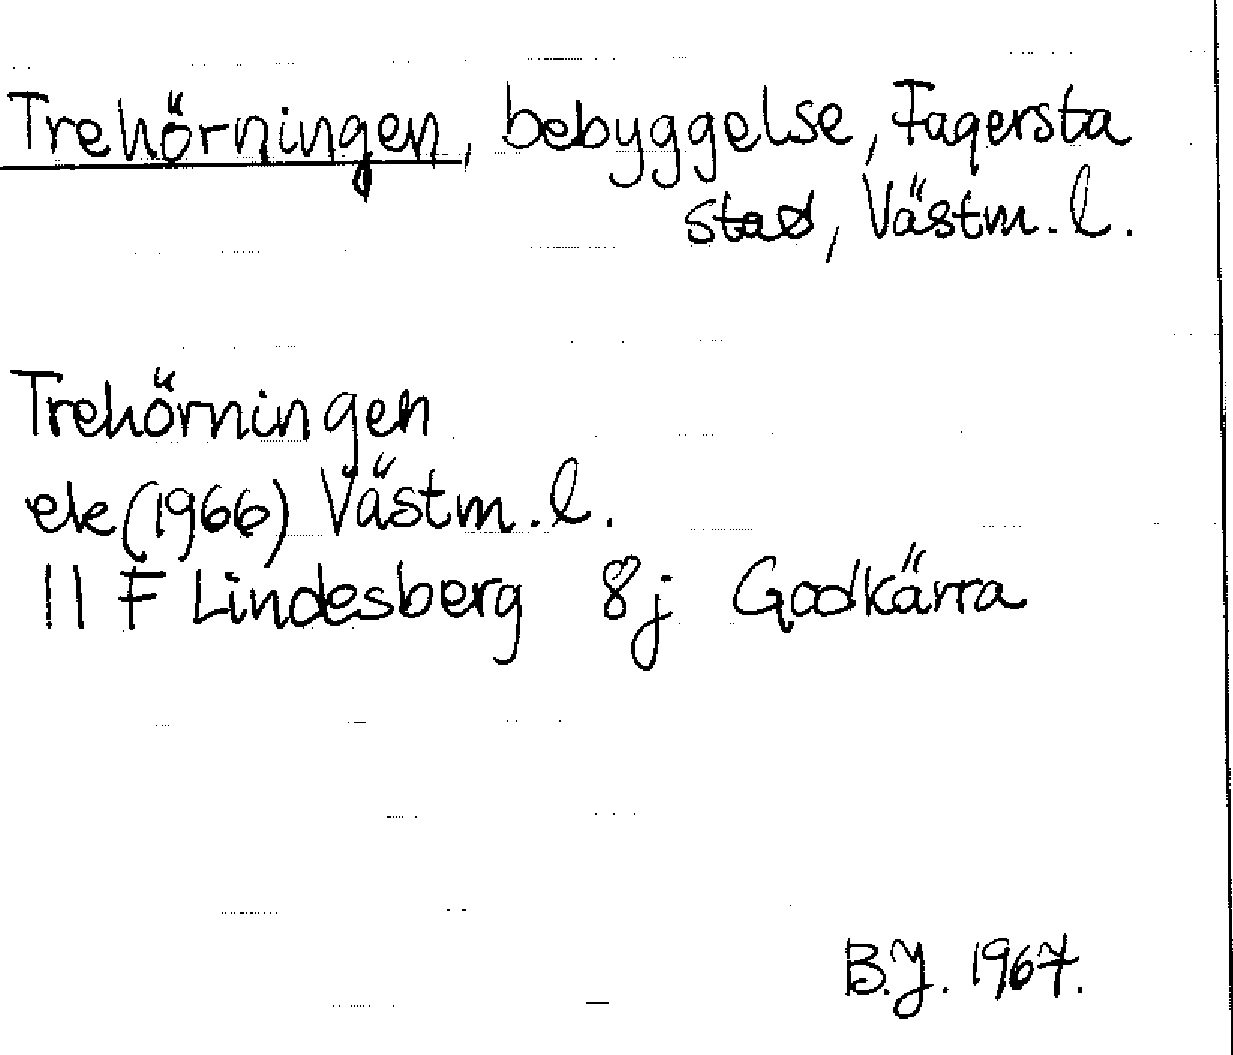 Trehörningen, bebyggelse, Fagersta
stad, Västm. l.
Trehörningen
ek (1966) Västm. l.
11 F Lindesberg 8j Godkärra
B.J. 1967.